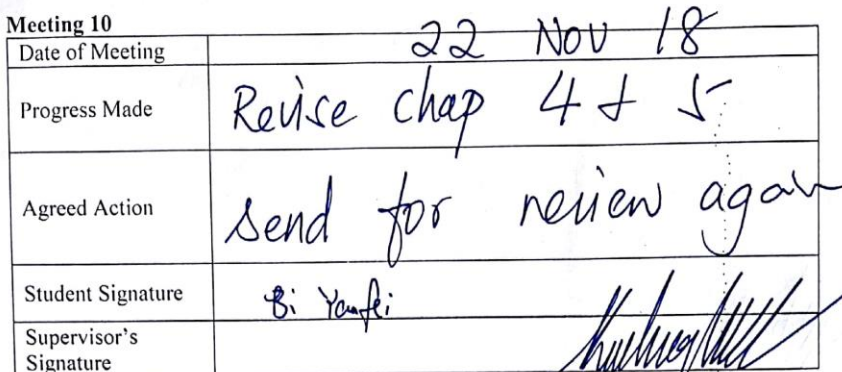 Meeting 10
Date of Meeting 22 Nov 18
Progress Made Revise chap 4 & 5
Agreed Action send for review again
Student Signature Bi Yanfei
Supervisor's
Signature